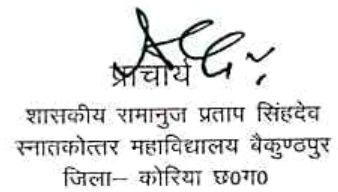 प्राचार्य
शासकीय रामानुज प्रताप सिंहदेव
स्नातकोत्तर महाविद्यालय बैकुण्ठपुर
जिला– कोरिया छ0ग0